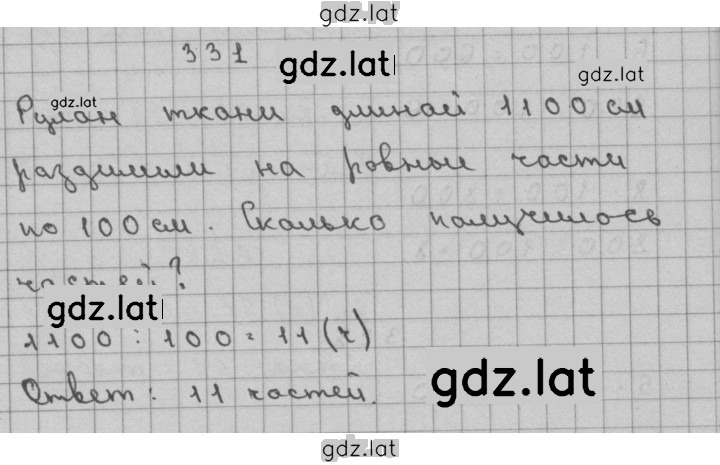 gdz.lat
331
gdz.lat
gdz.lat
gdz.lat
Рулон ткани длиной 1100 см
разделили на ровные части
по 100 см. Сколько получилось
частей?
gdz.lat
1100 : 100 = 11 (ч)
gdz.lat
Ответ: 11 частей.
gdz.lat